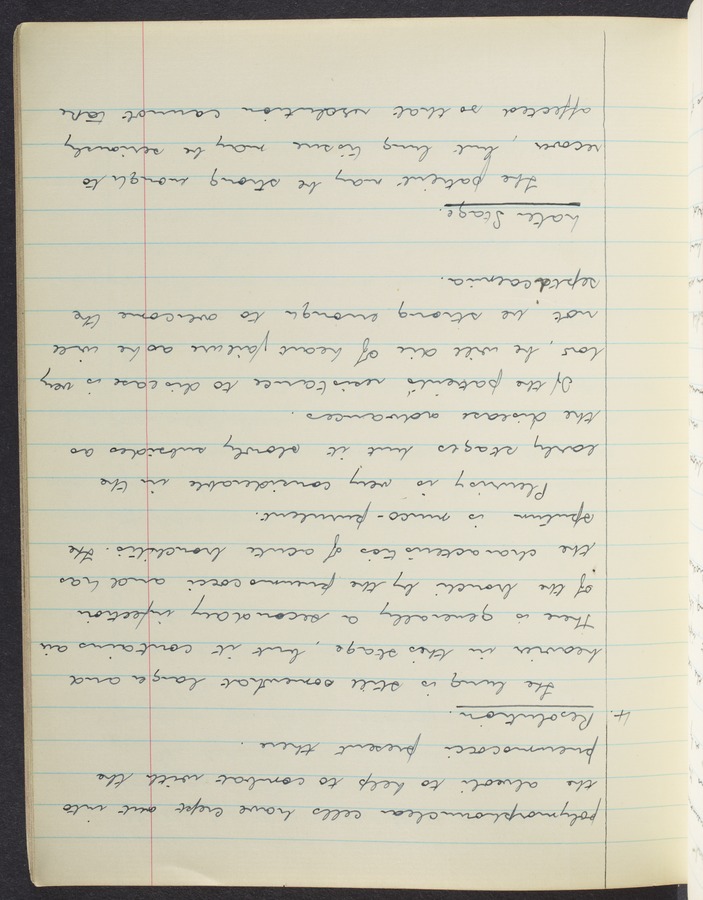 polymorphonuclear cells have crept out into
the alveoli to help to combat with the
pneumococci present there.
4. Resolution.
The lung is still somewhat larger and
heavier in this stage, but it contains air
There is generally a secondary infection
of the bronchi by the pneumococci and has
the characteristics of acute bronchitis. The
sputum is muco-purulent.
Pleurisy is very considerable in the
early stages but it slowly subsides as
the disease advances.
If the patient's resistance to disease is very
low, he will die of heart failure as he will
not be strong enough to overcome the
septicaemia.
Later Stage.
The patient may be strong enough to
recover, but lung tissue may be seriously
affected so that resolution cannot take